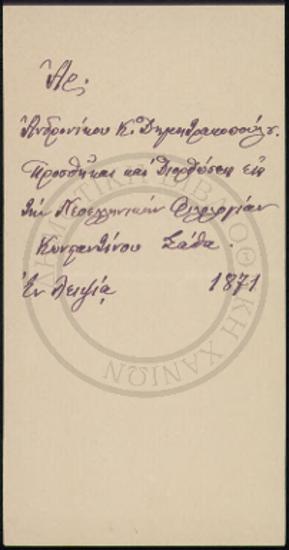 Ἀρ.
Ἀνδρονίκου Κ. Δημητρακοπούλου.
Προσθῆκαι καὶ Διορθώσεις εἰς
τὴν Νεοελληνικὴν Φιλολογίαν
Κωνσταντίνου Σάθα.
Ἐν Λειψίᾳ 1871
ΔΗΜΟΤΙΚΗ ΒΙΒΛΙΟΘΗΚΗ ΧΑΝΙΩΝ